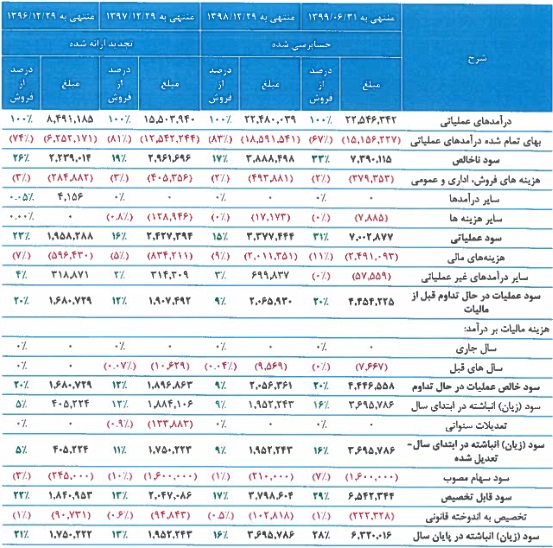 شرح منتهی به ۱۳۹۹/۰۶/۳۱ منتهی به ۱۳۹۸/۱۲/۲۹ منتهی به ۱۳۹۷/۱۲/۲۹ منتهی به ۱۳۹۶/۱۲/۲۹
حسابرسی شده تجدید ارائه شده
مبلغ درصد از فروش مبلغ درصد از فروش مبلغ درصد از فروش مبلغ درصد از فروش
درآمدهای عملیاتی ۲۲,۵۴۶,۳۴۲ ۱۰۰٪ ۲۲,۴۸۰,۰۳۹ ۱۰۰٪ ۱۵,۵۰۳,۹۴۰ ۱۰۰٪ ۸,۴۹۱,۱۸۵ ۱۰۰٪
بهای تمام شده درآمدهای عملیاتی (۱۵,۱۵۶,۲۲۷) (۶۷٪) (۱۸,۵۹۱,۵۴۱) (۸۳٪) (۱۲,۵۴۲,۲۴۴) (۸۱٪) (۶,۲۵۲,۱۷۱) (۷۴٪)
سود ناخالص ۷,۳۹۰,۱۱۵ ۳۳٪ ۳,۸۸۸,۴۹۸ ۱۷٪ ۲,۹۶۱,۶۹۶ ۱۹٪ ۲,۲۳۹,۰۱۴ ۲۶٪
هزینه های فروش، اداری و عمومی (۳۷۹,۳۵۳) (۲٪) (۴۹۳,۸۸۱) (۲٪) (۴۰۵,۳۵۶) (۳٪) (۲۸۴,۸۸۲) (۳٪)
سایر درآمدها ۰ ۰٪ ۰ ۰٪ ۰ ۰٪ ۴,۱۵۶ ۰.۰۵٪
سایر هزینه ها (۷,۸۸۵) (۰٪) (۱۷,۱۷۳) (۰٪) (۱۲۸,۹۴۶) (۰.۸٪) ۰ ۰.۰۰٪
سود عملیاتی ۷,۰۰۲,۸۷۷ ۳۱٪ ۳,۳۷۷,۴۴۴ ۱۵٪ ۲,۴۲۷,۳۹۴ ۱۶٪ ۱,۹۵۸,۲۸۸ ۲۳٪
هزینه‌های مالی (۲,۴۹۱,۰۹۳) (۱۱٪) (۲,۰۱۱,۳۵۱) (۹٪) (۸۳۴,۲۱۱) (۵٪) (۵۹۶,۴۳۰) (۷٪)
سایر درآمدهای غیر عملیاتی (۵۷,۵۵۹) (۰٪) ۶۹۹,۸۳۷ ۳٪ ۳۱۴,۳۰۹ ۲٪ ۳۱۸,۸۷۱ ۴٪
سود عملیات در حال تداوم قبل از مالیات ۴,۴۵۴,۲۲۵ ۲۰٪ ۲,۰۶۵,۹۳۰ ۹٪ ۱,۹۰۷,۴۹۲ ۱۲٪ ۱,۶۸۰,۷۲۹ ۲۰٪
هزینه مالیات بر درآمد:
سال جاری ۰ ۰٪ ۰ ۰٪ ۰ ۰٪ ۰ ۰٪
سال های قبل (۷,۶۶۷) (۰٪) (۹,۵۶۹) (۰.۰۴٪) (۱۰,۶۲۹) (۰.۰۷٪) ۰ ۰٪
سود خالص عملیات در حال تداوم ۴,۴۴۶,۵۵۸ ۲۰٪ ۲,۰۵۶,۳۶۱ ۹٪ ۱,۸۹۶,۸۶۳ ۱۲٪ ۱,۶۸۰,۷۲۹ ۲۰٪
سود (زیان) انباشته در ابتدای سال ۳,۶۹۵,۷۸۶ ۱۶٪ ۱,۹۵۲,۲۴۳ ۹٪ ۱,۸۸۴,۱۰۶ ۱۲٪ ۴۰۵,۲۲۴ ۵٪
تعدیلات سنواتی ۰ ۰٪ ۰ ۰٪ (۱۳۳,۸۸۳) (۰.۹٪) ۰ ۰٪
سود (زیان) انباشته در ابتدای سال- تعدیل شده ۳,۶۹۵,۷۸۶ ۱۶٪ ۱,۹۵۲,۲۴۳ ۹٪ ۱,۷۵۰,۲۲۳ ۱۱٪ ۴۰۵,۲۲۴ ۵٪
سود سهام مصوب (۱,۶۰۰,۰۰۰) (۷٪) (۲۱۰,۰۰۰) (۱٪) (۱,۶۰۰,۰۰۰) (۱۰٪) (۲۴۵,۰۰۰) (۳٪)
سود قابل تخصیص ۶,۵۴۲,۳۴۴ ۲۹٪ ۳,۷۹۸,۶۰۴ ۱۷٪ ۲,۰۴۷,۰۸۶ ۱۳٪ ۱,۸۴۰,۹۵۳ ۲۲٪
تخصیص به اندوخته قانونی (۲۲۲,۳۲۸) (۱٪) (۱۰۲,۸۱۸) (۰.۵٪) (۹۴,۸۴۳) (۰.۶٪) (۹۰,۷۳۱) (۱٪)
سود (زیان) انباشته در پایان سال ۶,۳۲۰,۰۱۶ ۲۸٪ ۳,۶۹۵,۷۸۶ ۱۶٪ ۱,۹۵۲,۲۴۳ ۱۳٪ ۱,۷۵۰,۲۲۲ ۲۱٪